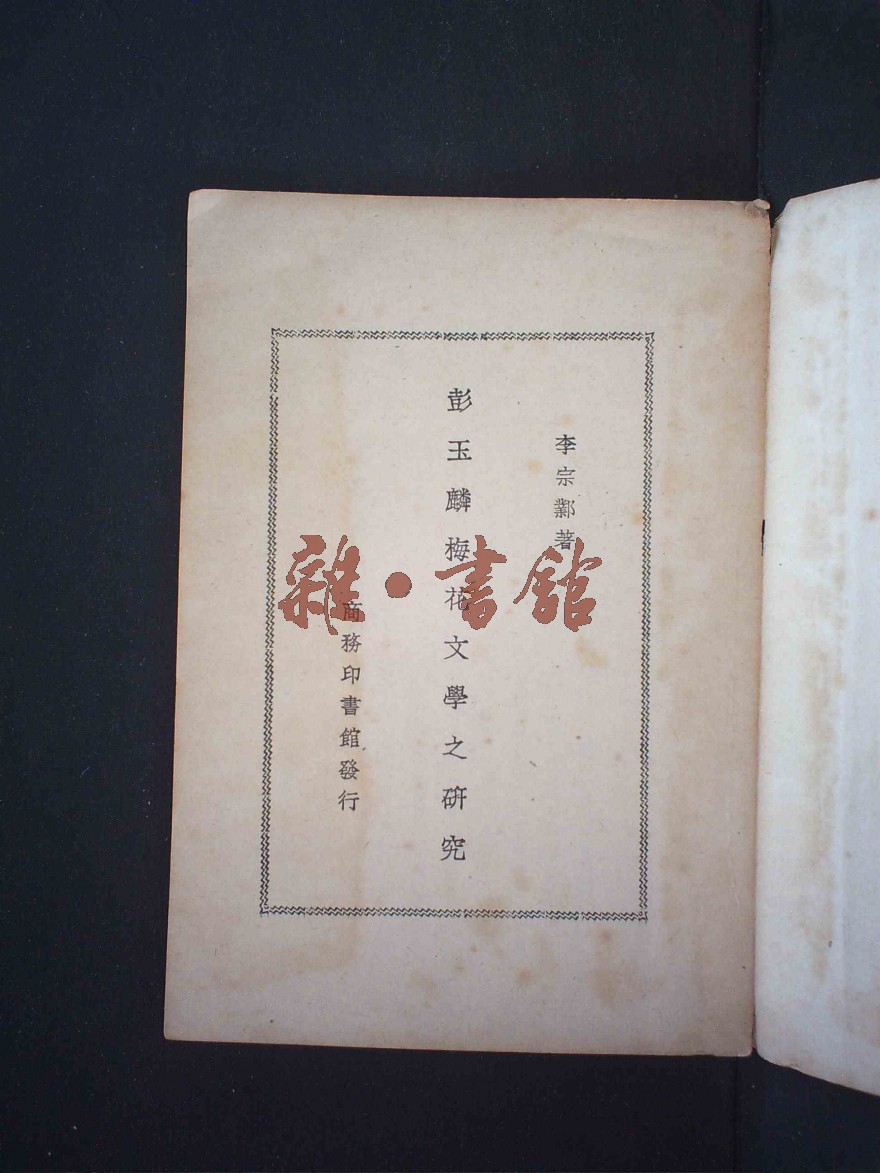 李宗鄴著
彭玉麟梅花文學之研究
商務印書館發行
雜·書館